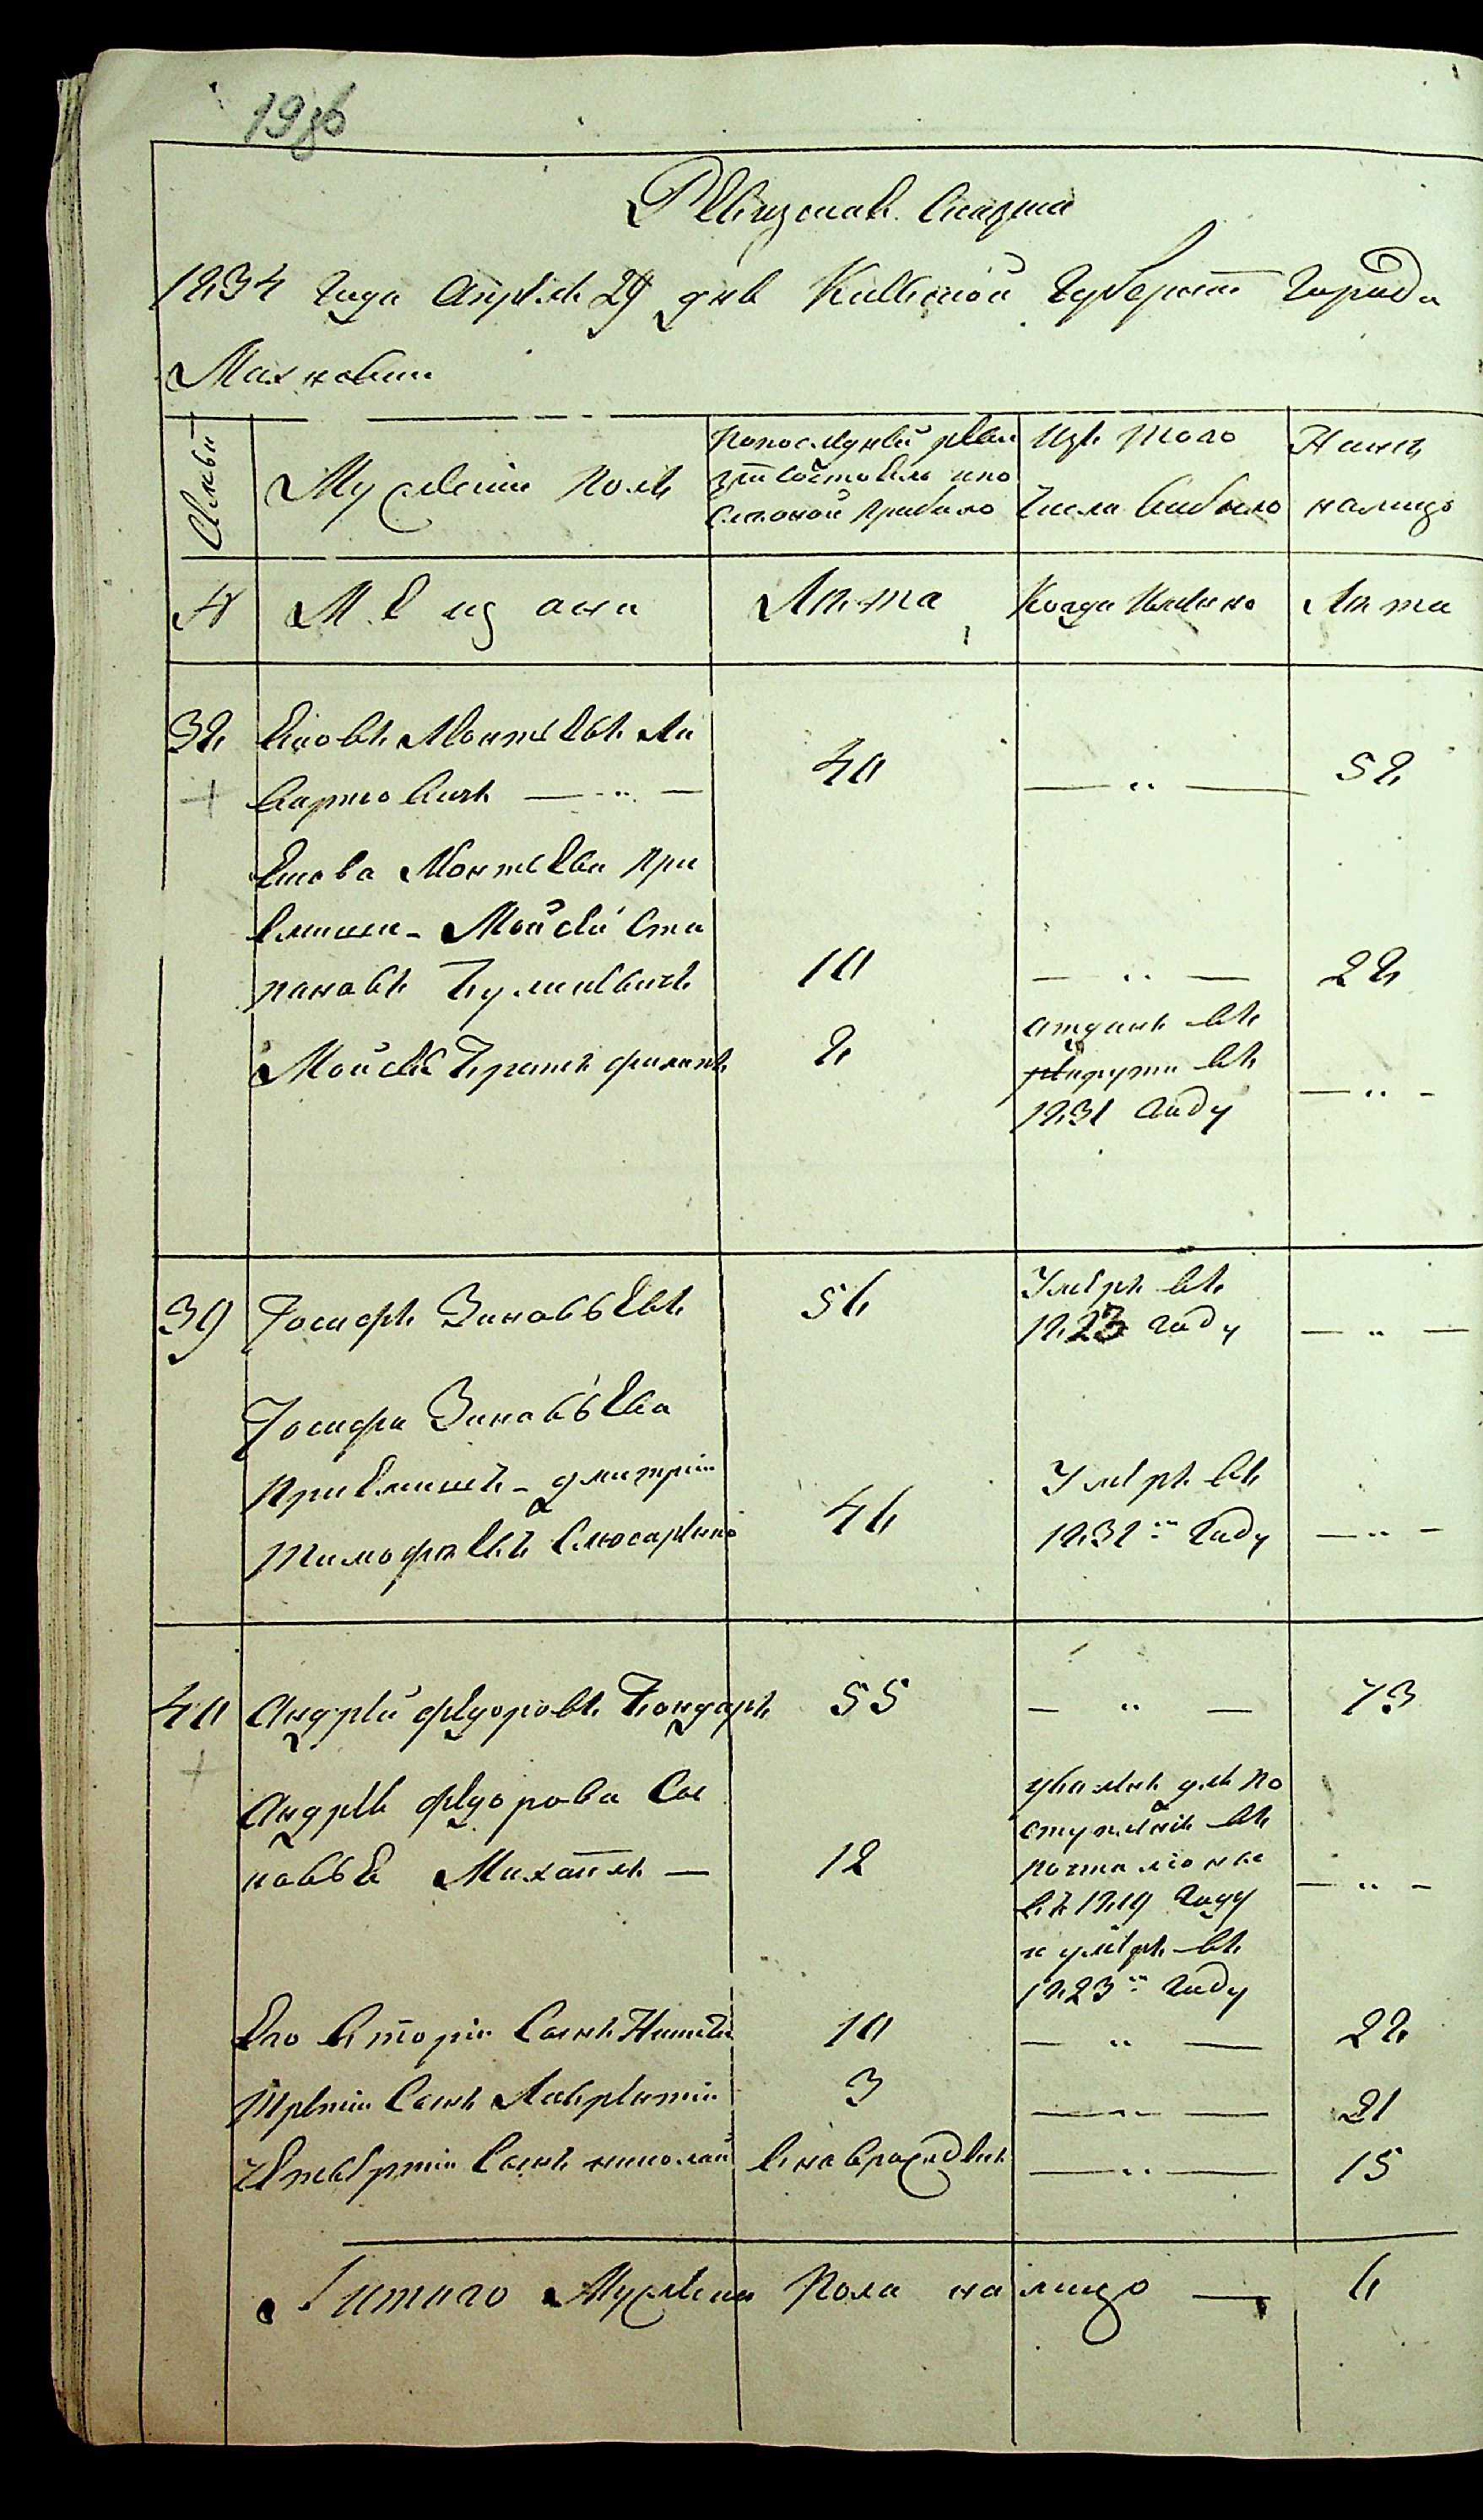 Ревизская Сказка
1834 года Апреля 29 дня Киевской Губернии города
Махновки
Семьи
Мужеский полъ
По последней реви
зіи состояло и по
слѣ оной прибыло
Изъ того
числа выбыло
Ныне
налицо
№
Мещане
Лѣта
Когда именно
Лѣта
38
Яковъ Мантеевъ Ла
40
— " —
58
варновичъ — " —
Якова Мантеева при
емыши - Мойсей Сте
пановъ
10
— " —
28
Мойсея братъ Филипъ
8
отданъ въ
рекруты въ
1831 году
— " —
39
Іосифъ Зиновьевъ
56
Умеръ въ
1823 году
— " —
Іосифа Зиновьева
приемышъ - Дмитрій
Тимофѣевъ Слюсаренко
46
Умеръ въ
1831 году
— " —
40
Андрей Федоровъ Бондаръ
55
— " —
73
Андрея Федорова сы
новья Михаилъ —
12
уволенъ для по
ступленія въ
почталіоны
въ 1819 году
и умеръ въ
1823 году
— " —
Его вторій сынъ Никита
10
— " —
28
Третій сынъ Лаврентій
3
— " —
21
Четвертій сынъ Николай
вноврожденъ
— " —
15
Итого мужеска пола налицо —
6